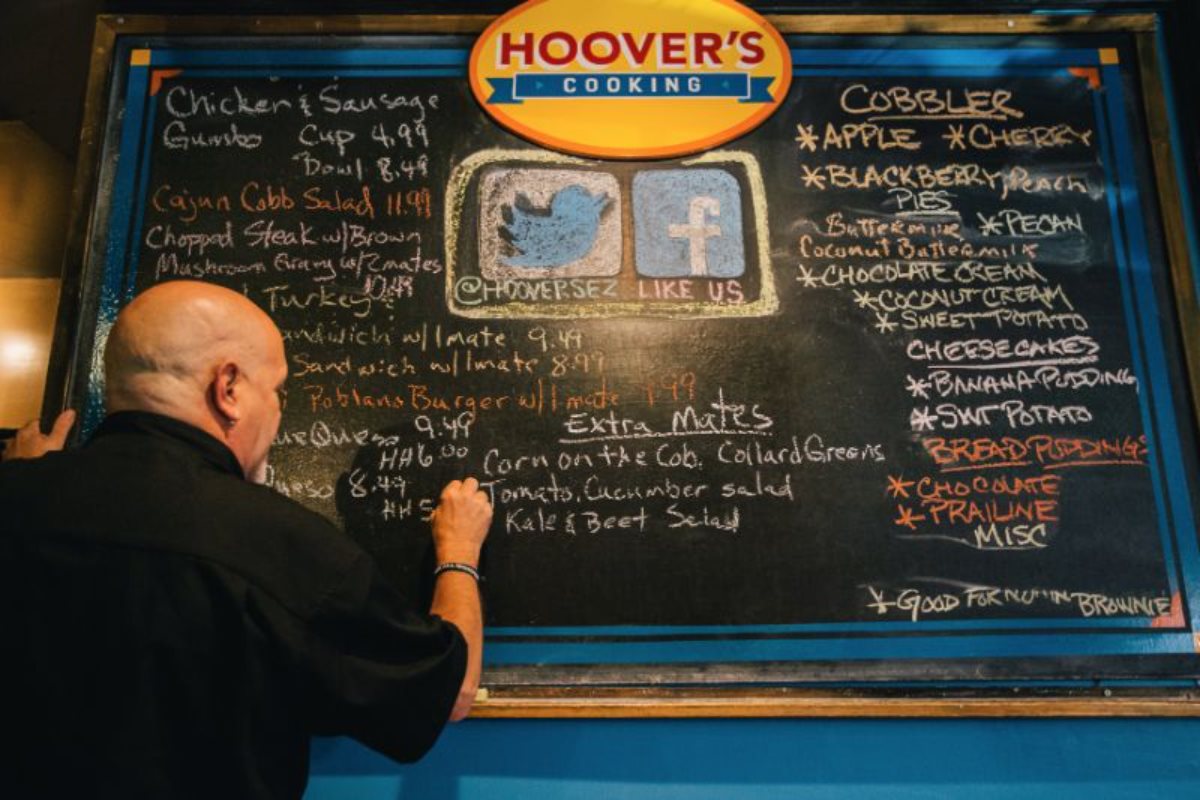 HOOVER'S
COOKING
Chicken & Sausage
Gumbo Cup 4.99
Bowl 8.49
Cajun Cobb Salad 11.99
Chopped Steak w/Brown
Mushroom Gravy w/2mates
Turkey
w/1mate 9.49
Sandwich w/1mate 8.99
Poblano Burger w/1mate 9.99
9.49
HH6.00
8.49
HH5
@HOOVERSEZ LIKE US
Extra Mates
Corn on the Cob, Collard Greens
Tomato, Cucumber salad
Kale & Beet Salad
COBBLER
*APPLE *CHERRY
*BLACKBERRY, Peach
PIES
Buttermilk *PECAN
Coconut Buttermilk
*CHOCOLATE CREAM
*COCONUT CREAM
*SWEET POTATO
CHEESECAKES
*BANANA PUDDING
*SWT POTATO
BREAD PUDDINGS
*CHOCOLATE
*PRAILINE
MISC
*GOOD FOR BROWNIE